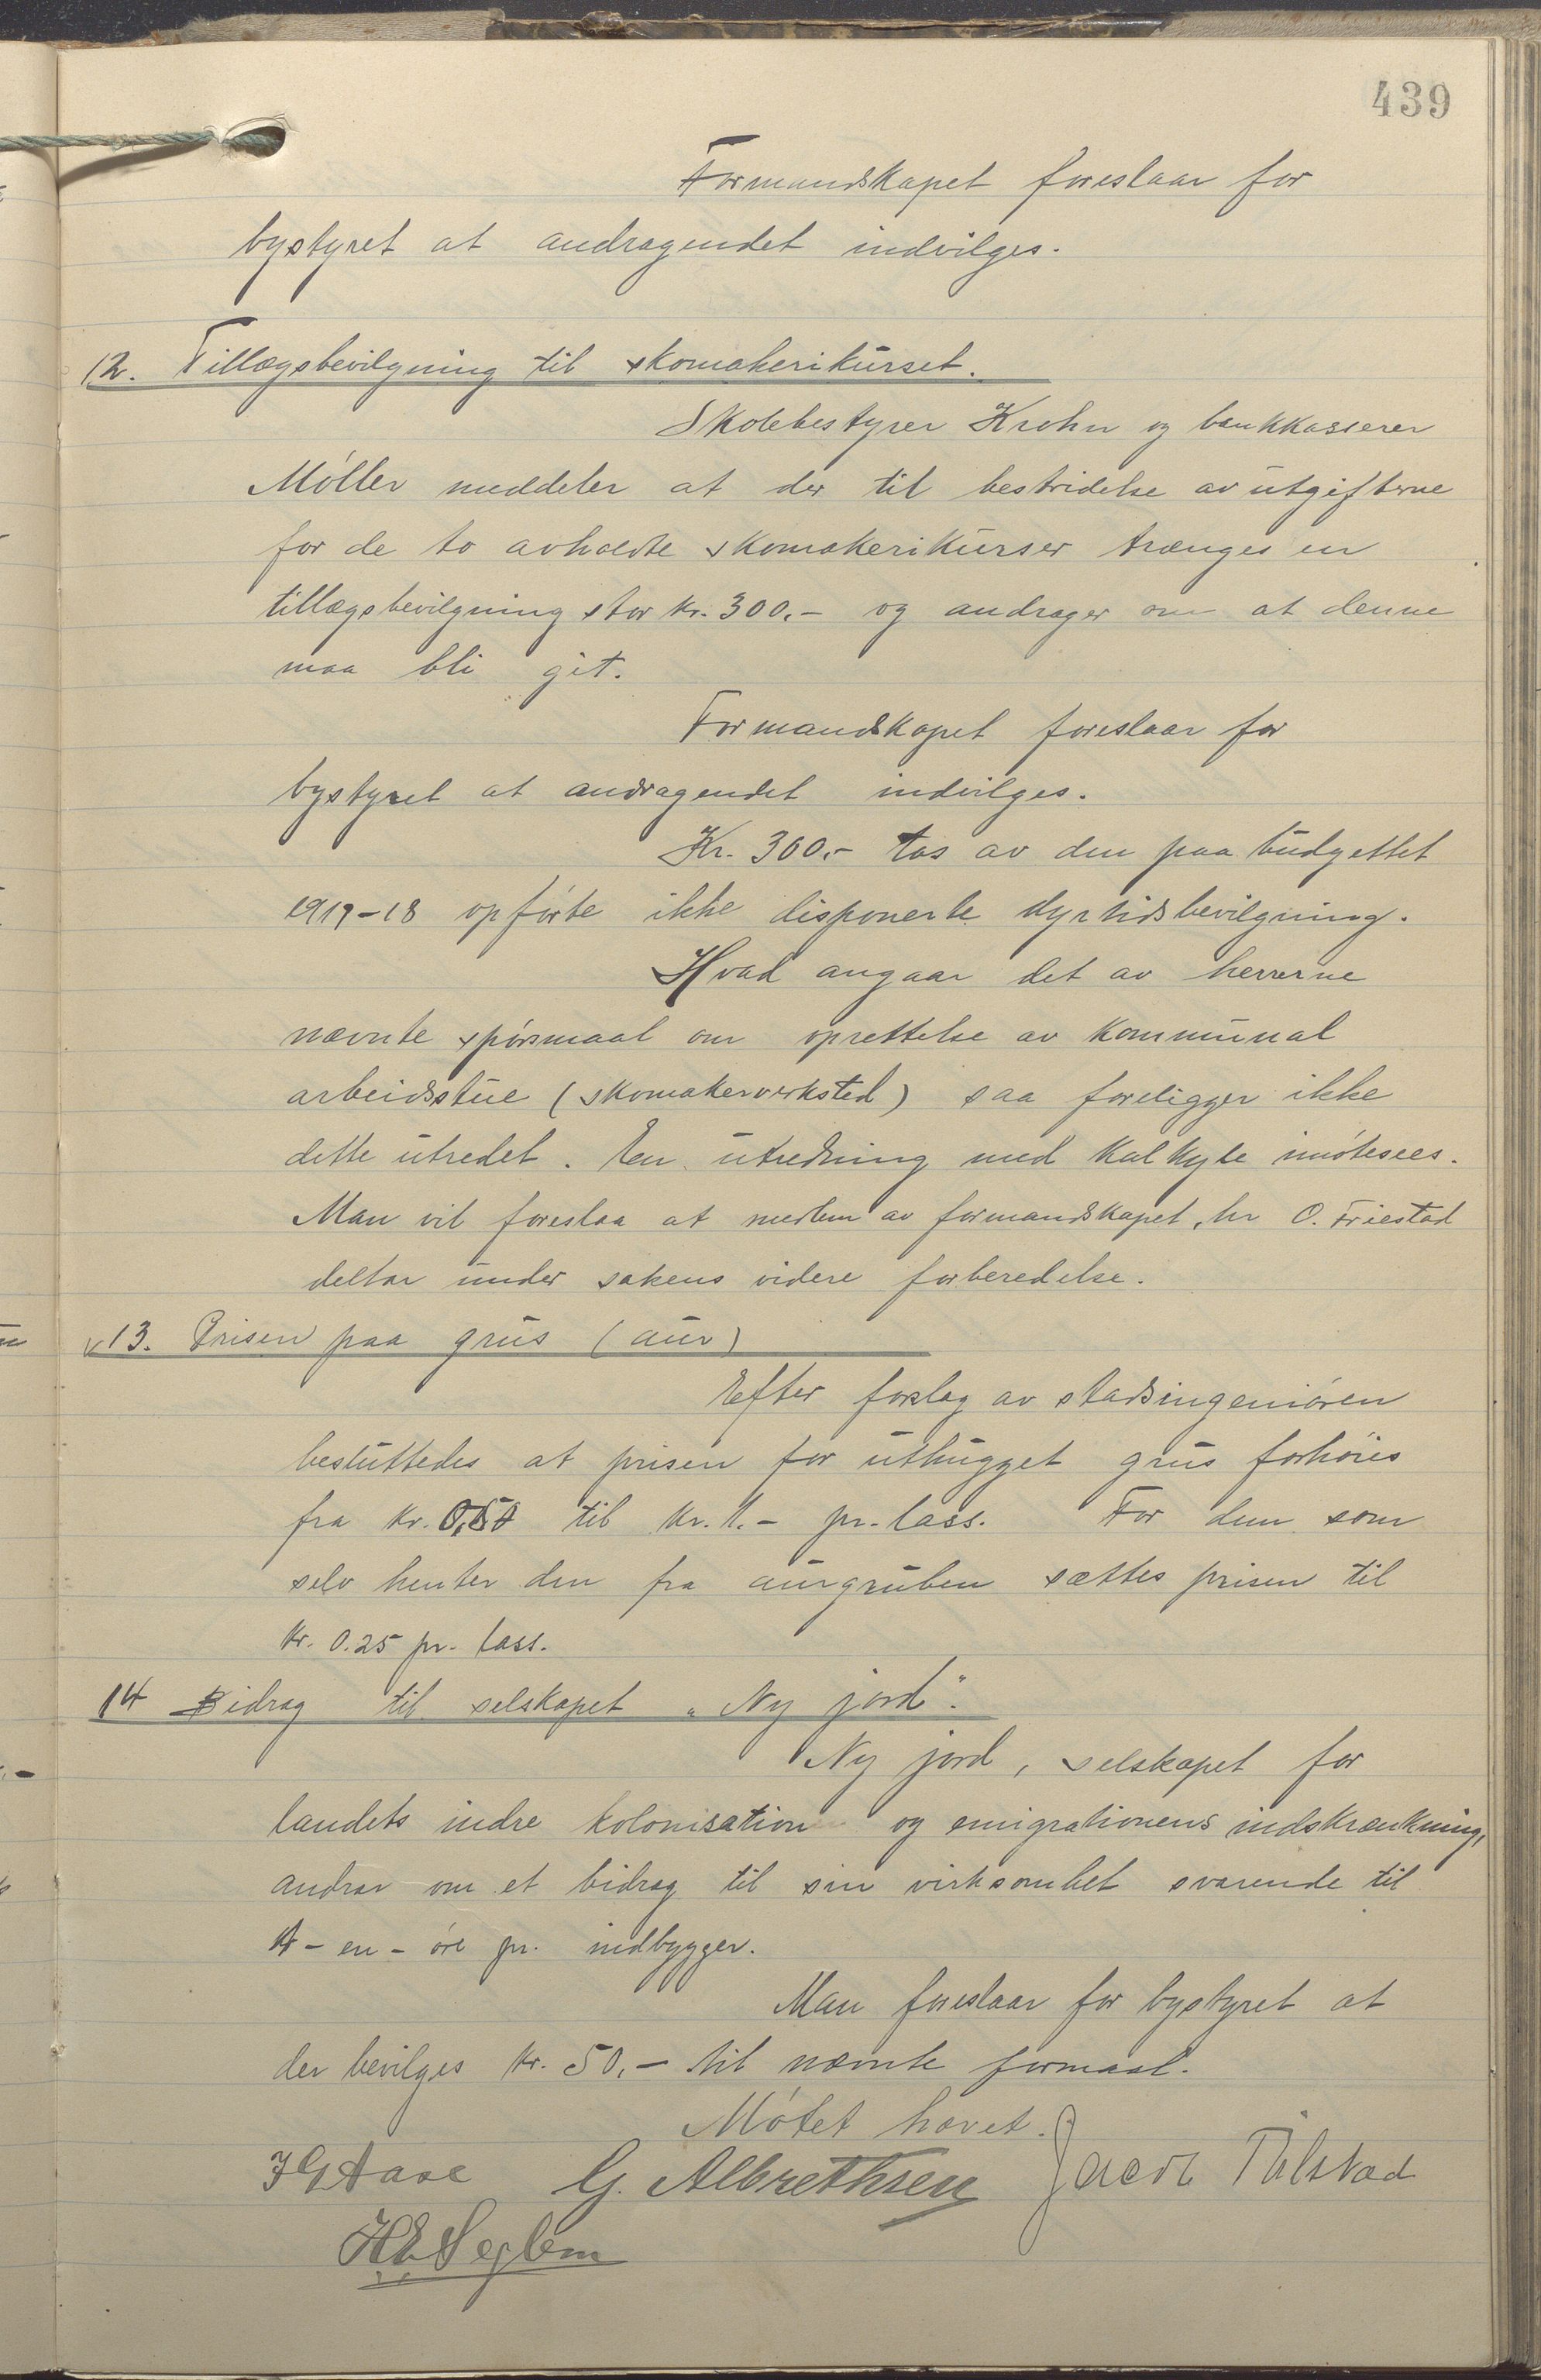 439
Formandskapet foreslaar for
bystyret at andragendet indvilges.
12. Tillægsbevilgning til skomakerikurset.
Skolebestyrer Krohn og bankkasserer
Møller meddeler at der til bestridelse av utgifterne
for de to avholdte skomakerikurser trænges en
tillægsbevilgning stor kr. 300.- og andrager om at denne
maa bli git.
Formandskapet foreslaar for
bystyret at andragendet indvilges.
Kr. 300.- tas av den paa budgettet
1917-18 opførte ikke disponerte dyrtidsbevilgning.
Hvad angaar det av herrerne
nævnte spørsmaal om oprettelse av kommunal
arbeidsstue (skomakerverksted) saa foreligger ikke
dette utredet. En utredning med kalkyle imøtesees.
Man vil foreslaa at medlem av formandskapet, hr O. Friestad
deltar under sakens videre forberedelse.
v 13. Prisen paa grus (aur)
Efter forslag av stadsingeniøren
besluttedes at prisen for uthugget grus forhøies
fra kr. 0,50 til kr. 1.- pr. lass. For dem som
selv henter den fra aurgruben sættes prisen til
kr. 0.25 pr. lass.
14 Bidrag til selskapet „Ny jord".
Ny jord, selskapet for
landets indre kolonisation og emigrationens indskrænkning,
andrar om et bidrag til sin virksomhet svarende til
1 - en - øre pr. indbygger.
Man foreslaar for bystyret at
der bevilges kr. 50.- til nævnte formaal.
Møtet hævet.
G. Albrethsen Jacob Tilstad